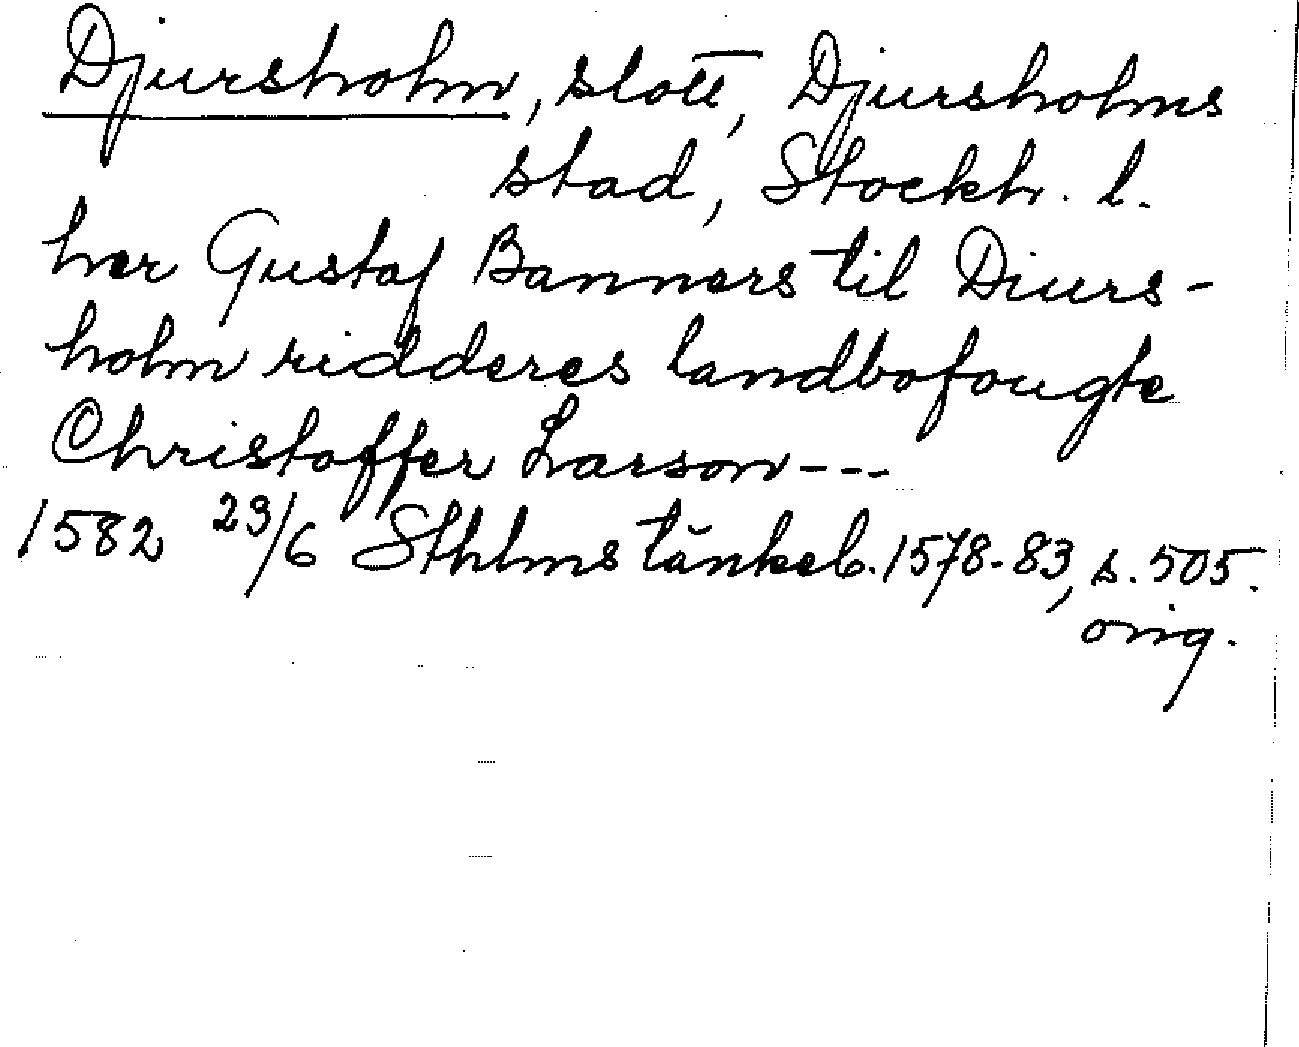 Djursholm, slott, Djursholms
stad, Stockh. l.
her Gustaf Banners til Diurs-
holm ridderes landbofougte
Christoffer Larson---
1582 23/6 Sthlms tänkeb. 1578-83, s. 505.
orig.